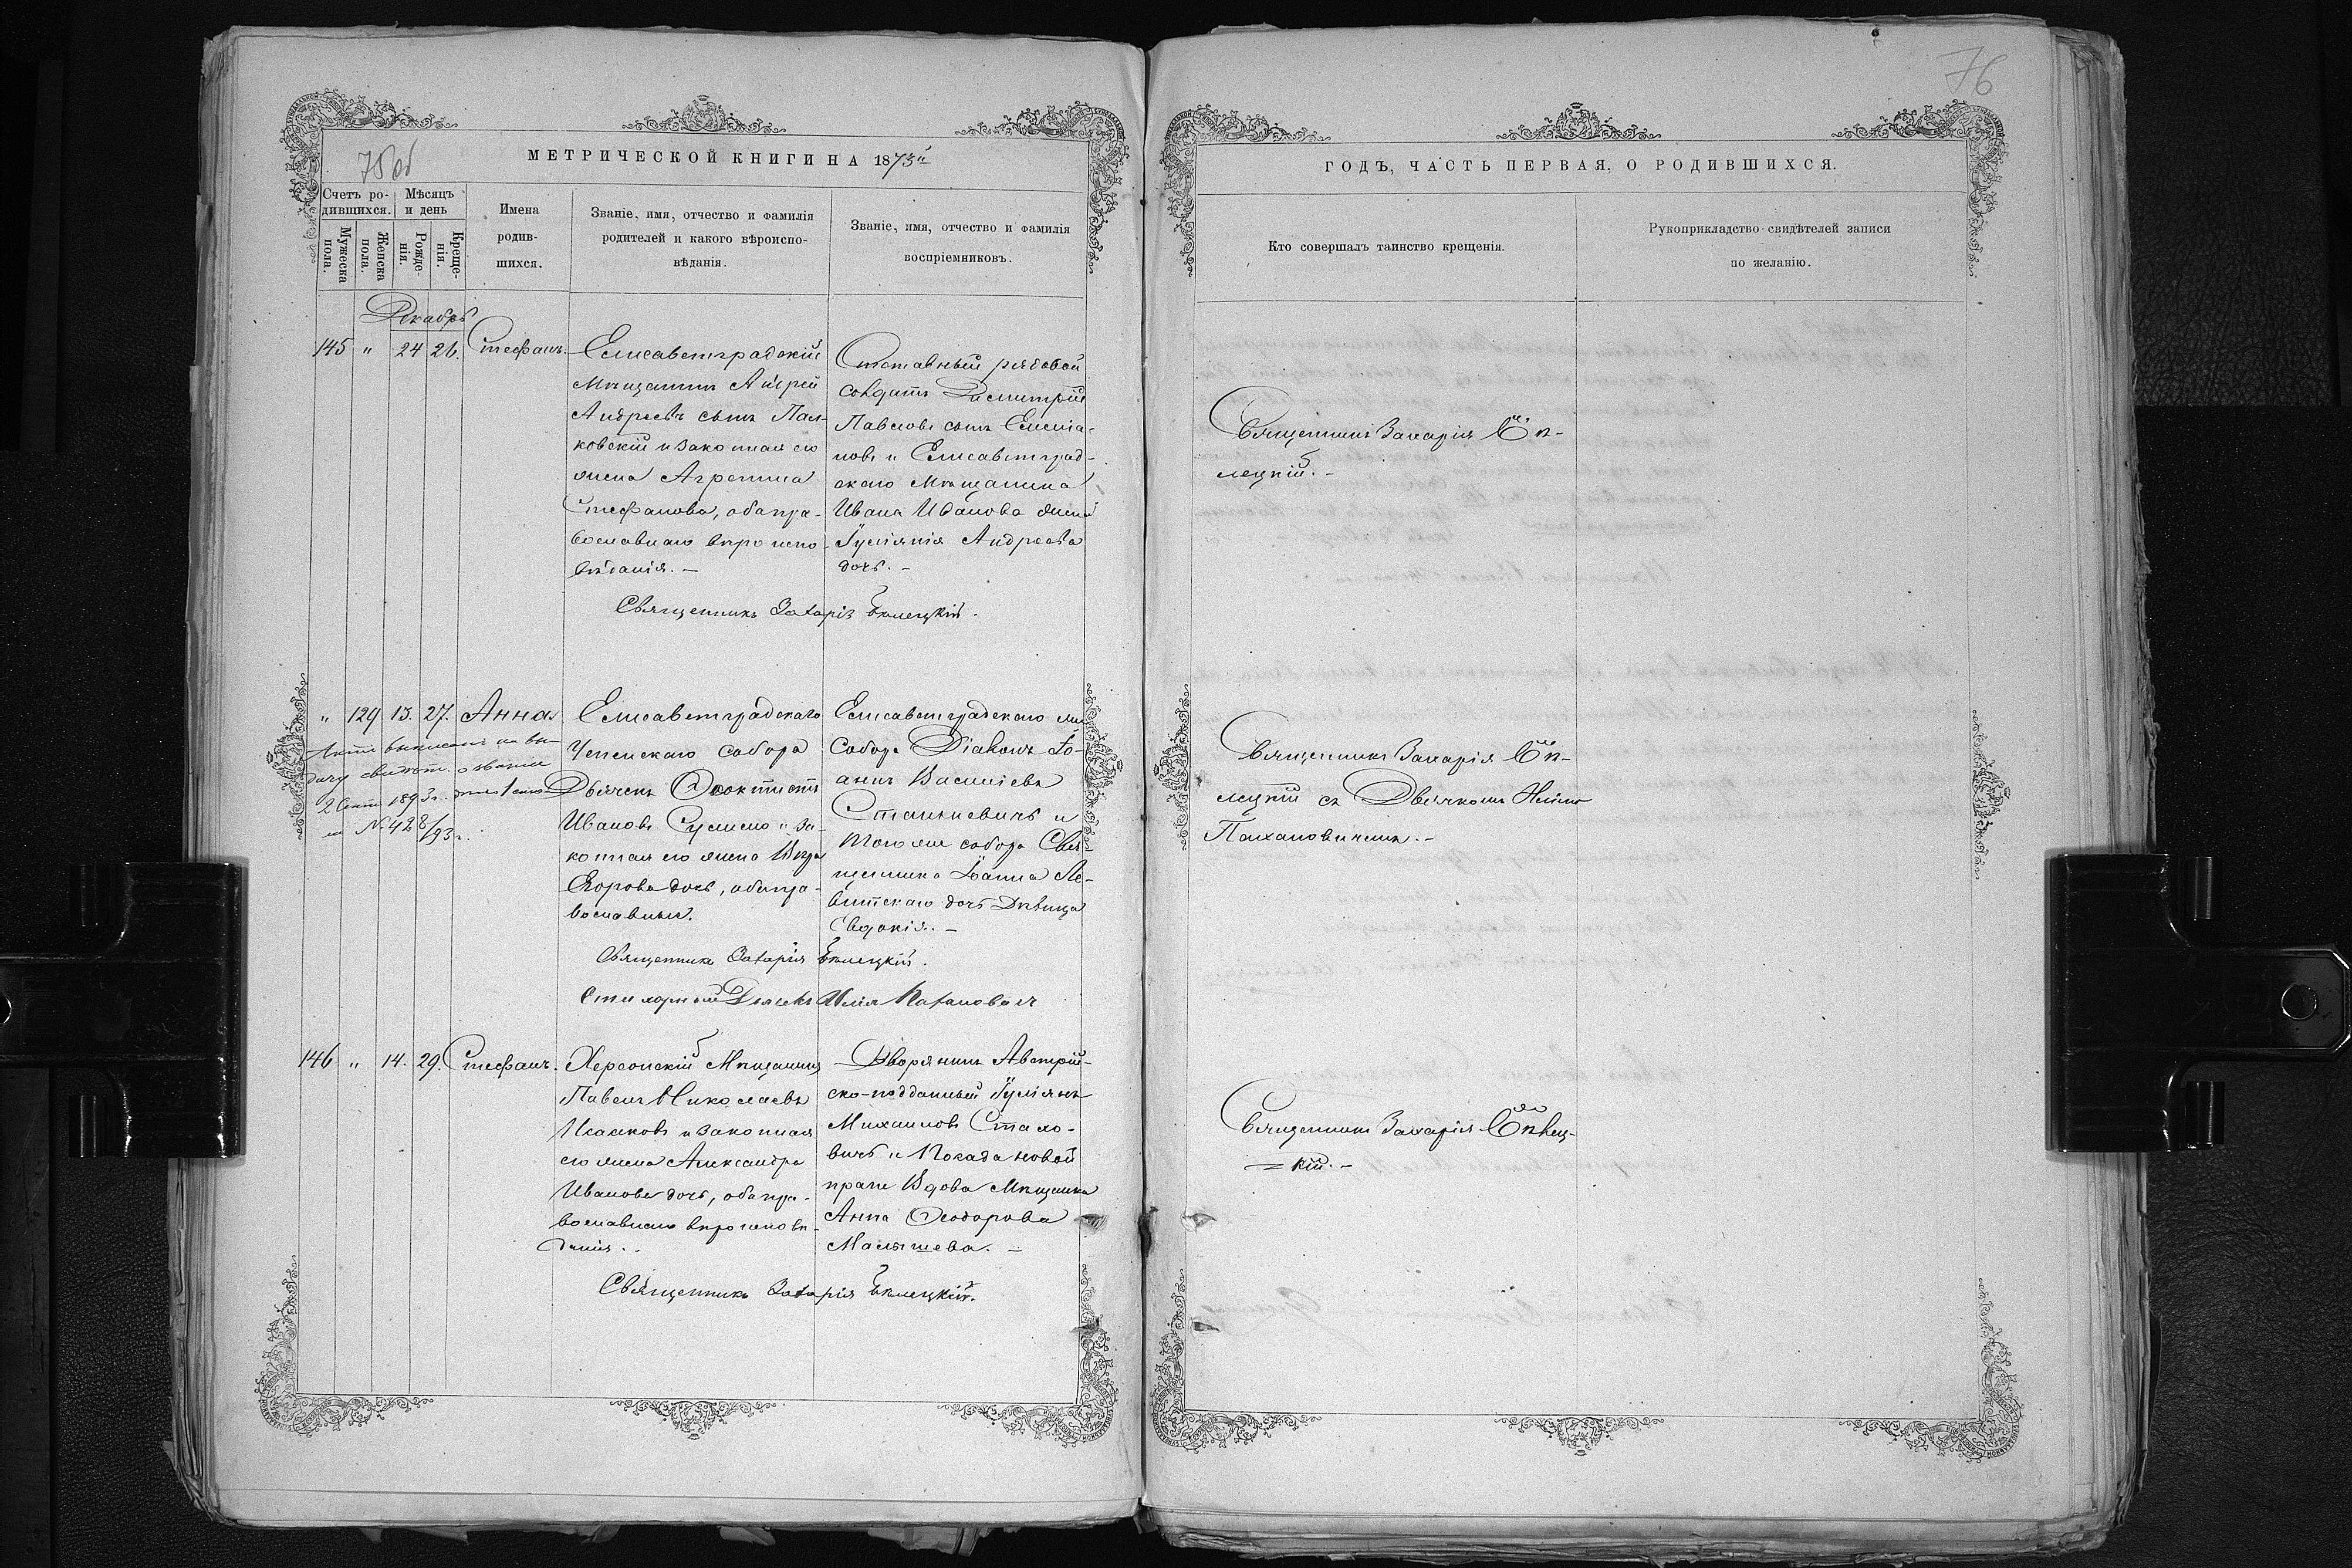 75 об
МЕТРИЧЕСКОЙ КНИГИ НА 1873й
Счетъ ро-
дившихся.
Мѣсяцъ
и день
Мужеска
пола.
Женска
пола.
Рожде-
нія.
Креще-
нія.
Имена
родив-
шихся.
Званіе, имя, отчество и фамилія
родителей и какого вѣроиспо-
вѣданія.
Званіе, имя, отчество и фамилія
воспріемниковъ.
Декабрь
145 " 24 26. Стефанъ.
Елисаветградскій
Мѣщанинъ Андрей
Андреевъ сынъ
ковскій и законная его
жена Агрепина
Стефанова, оба пра-
вославнаго вѣроиспо-
вѣданія. –
Отставный рядовой
солдатъ Димитрій
Павловъ сынъ Емелiа-
новъ и Елисаветград-
скаго Мѣщанина
Ивана Иванова жена
Іуліянія Андреева
дочь. –
Священникъ Захарія Бѣлецкій.
" 129 13. 27. Анна
Актъ выписанъ на вы-
дачу свидѣт. о званіи
2 Сент. 1893 г.
№ 428/93 г.
Елисаветградскаго
Успенскаго собора
Дьячекъ Ѳеоктистъ
Ивановъ и за-
конная его жена Вѣра
Егорова дочь, оба пра-
вославные.
Елисаветградскаго
Собора Діаконъ Іо-
аннъ Василіевъ
Станкевичъ и
того же собора Свя-
щенника Іоанна Ле-
витскаго дочь Дѣвица
Евдокія. –
Священникъ Захарія Бѣлецкій.
Стихарный Дьячекъ Илія Пахановичъ
146 " 14. 29. Стефанъ.
Херсонскій Мѣщанинъ
Павелъ Николаевъ
Исаковъ и законная
его жена Александра
Иванова дочь, оба пра-
вославнаго вѣроисповѣ-
данія. .
Дворянинъ Австрій-
ско-подданный Іуліянъ
Михаиловъ Стахо-
вичъ и Посада новой
праги Вдова Мѣщанка
Анна Ѳеодорова
Малышева. –
Священникъ Захарія Бѣлецкій.
76
ГОДЪ, ЧАСТЬ ПЕРВАЯ, О РОДИВШИХСЯ.
Кто совершалъ таинство крещенія.
Рукоприкладство свидѣтелей записи
по желанію.
Священникъ Захарія Бѣ-
лецкій. –
Священникъ Захарія Бѣ-
лецкій съ Дьячкомъ Иліею
Пахановичемъ. –
Священникъ Захарія Бѣлец-
= кій. –